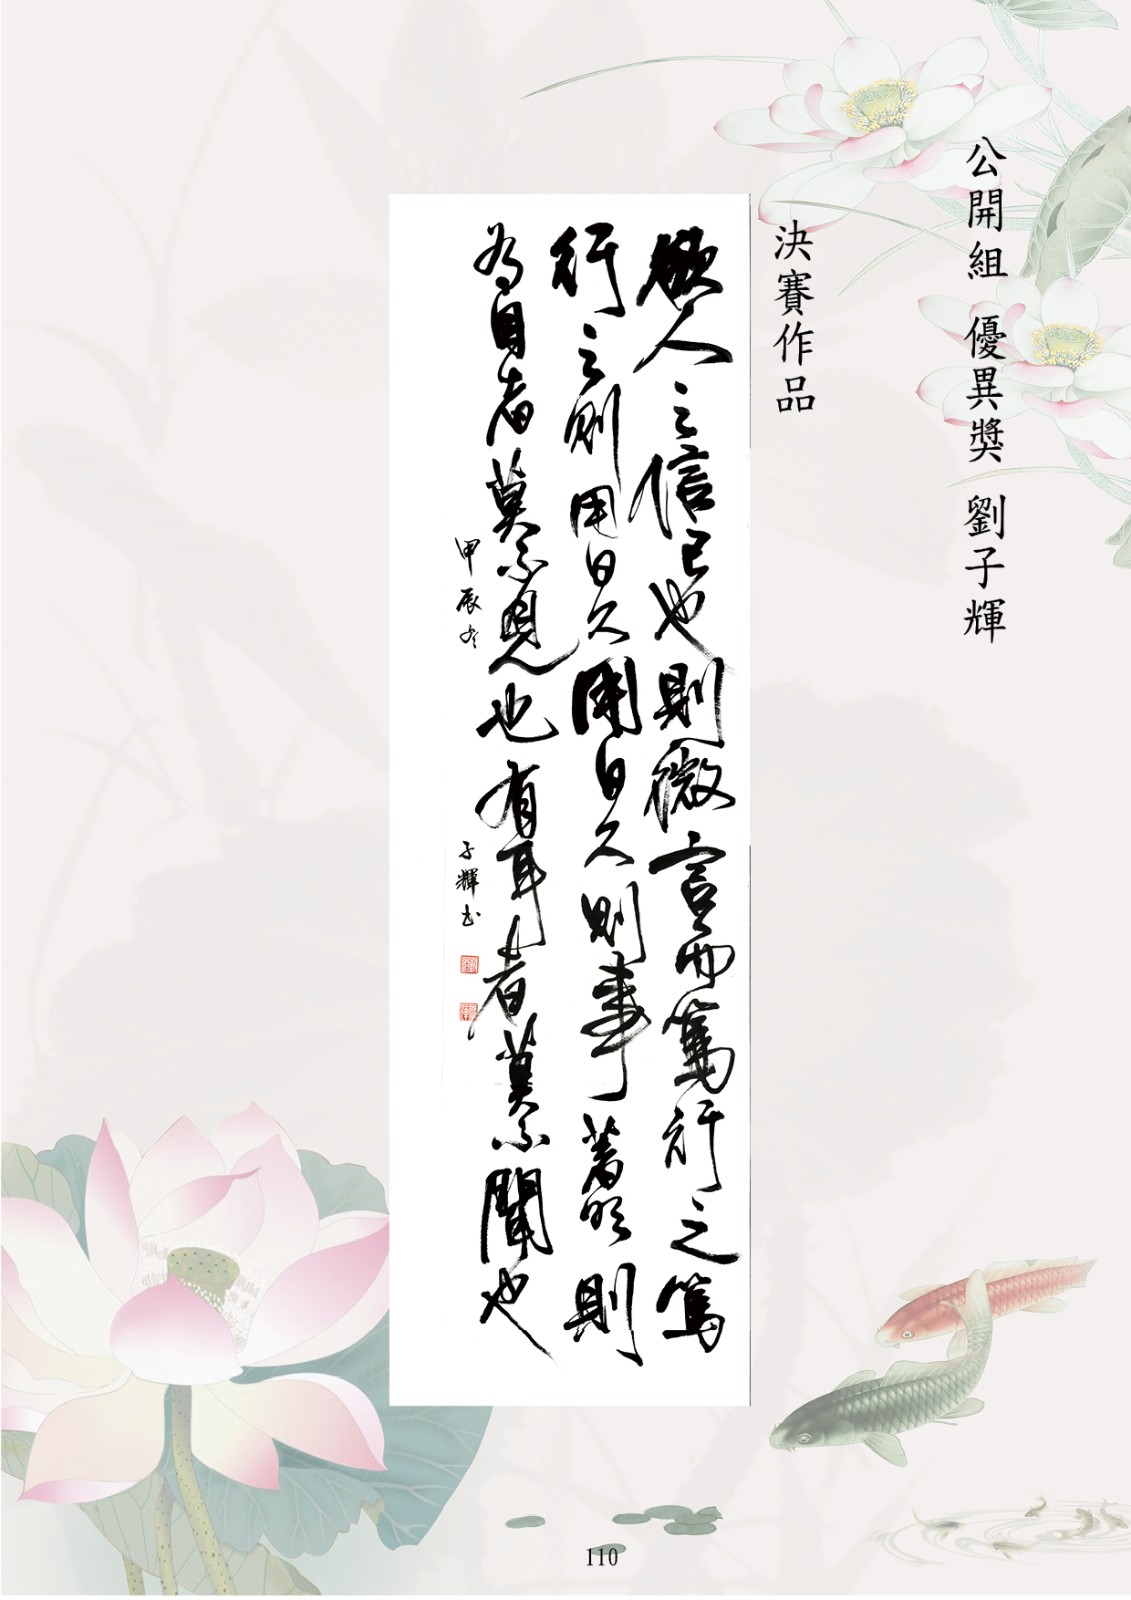 公開組 優異獎 劉子輝
決賽作品
欲人之信己也則微言而篤行之篤
行之則用日久用日久則事著明則
有目者莫不見也有耳者莫不聞也
甲辰冬 子輝書
110